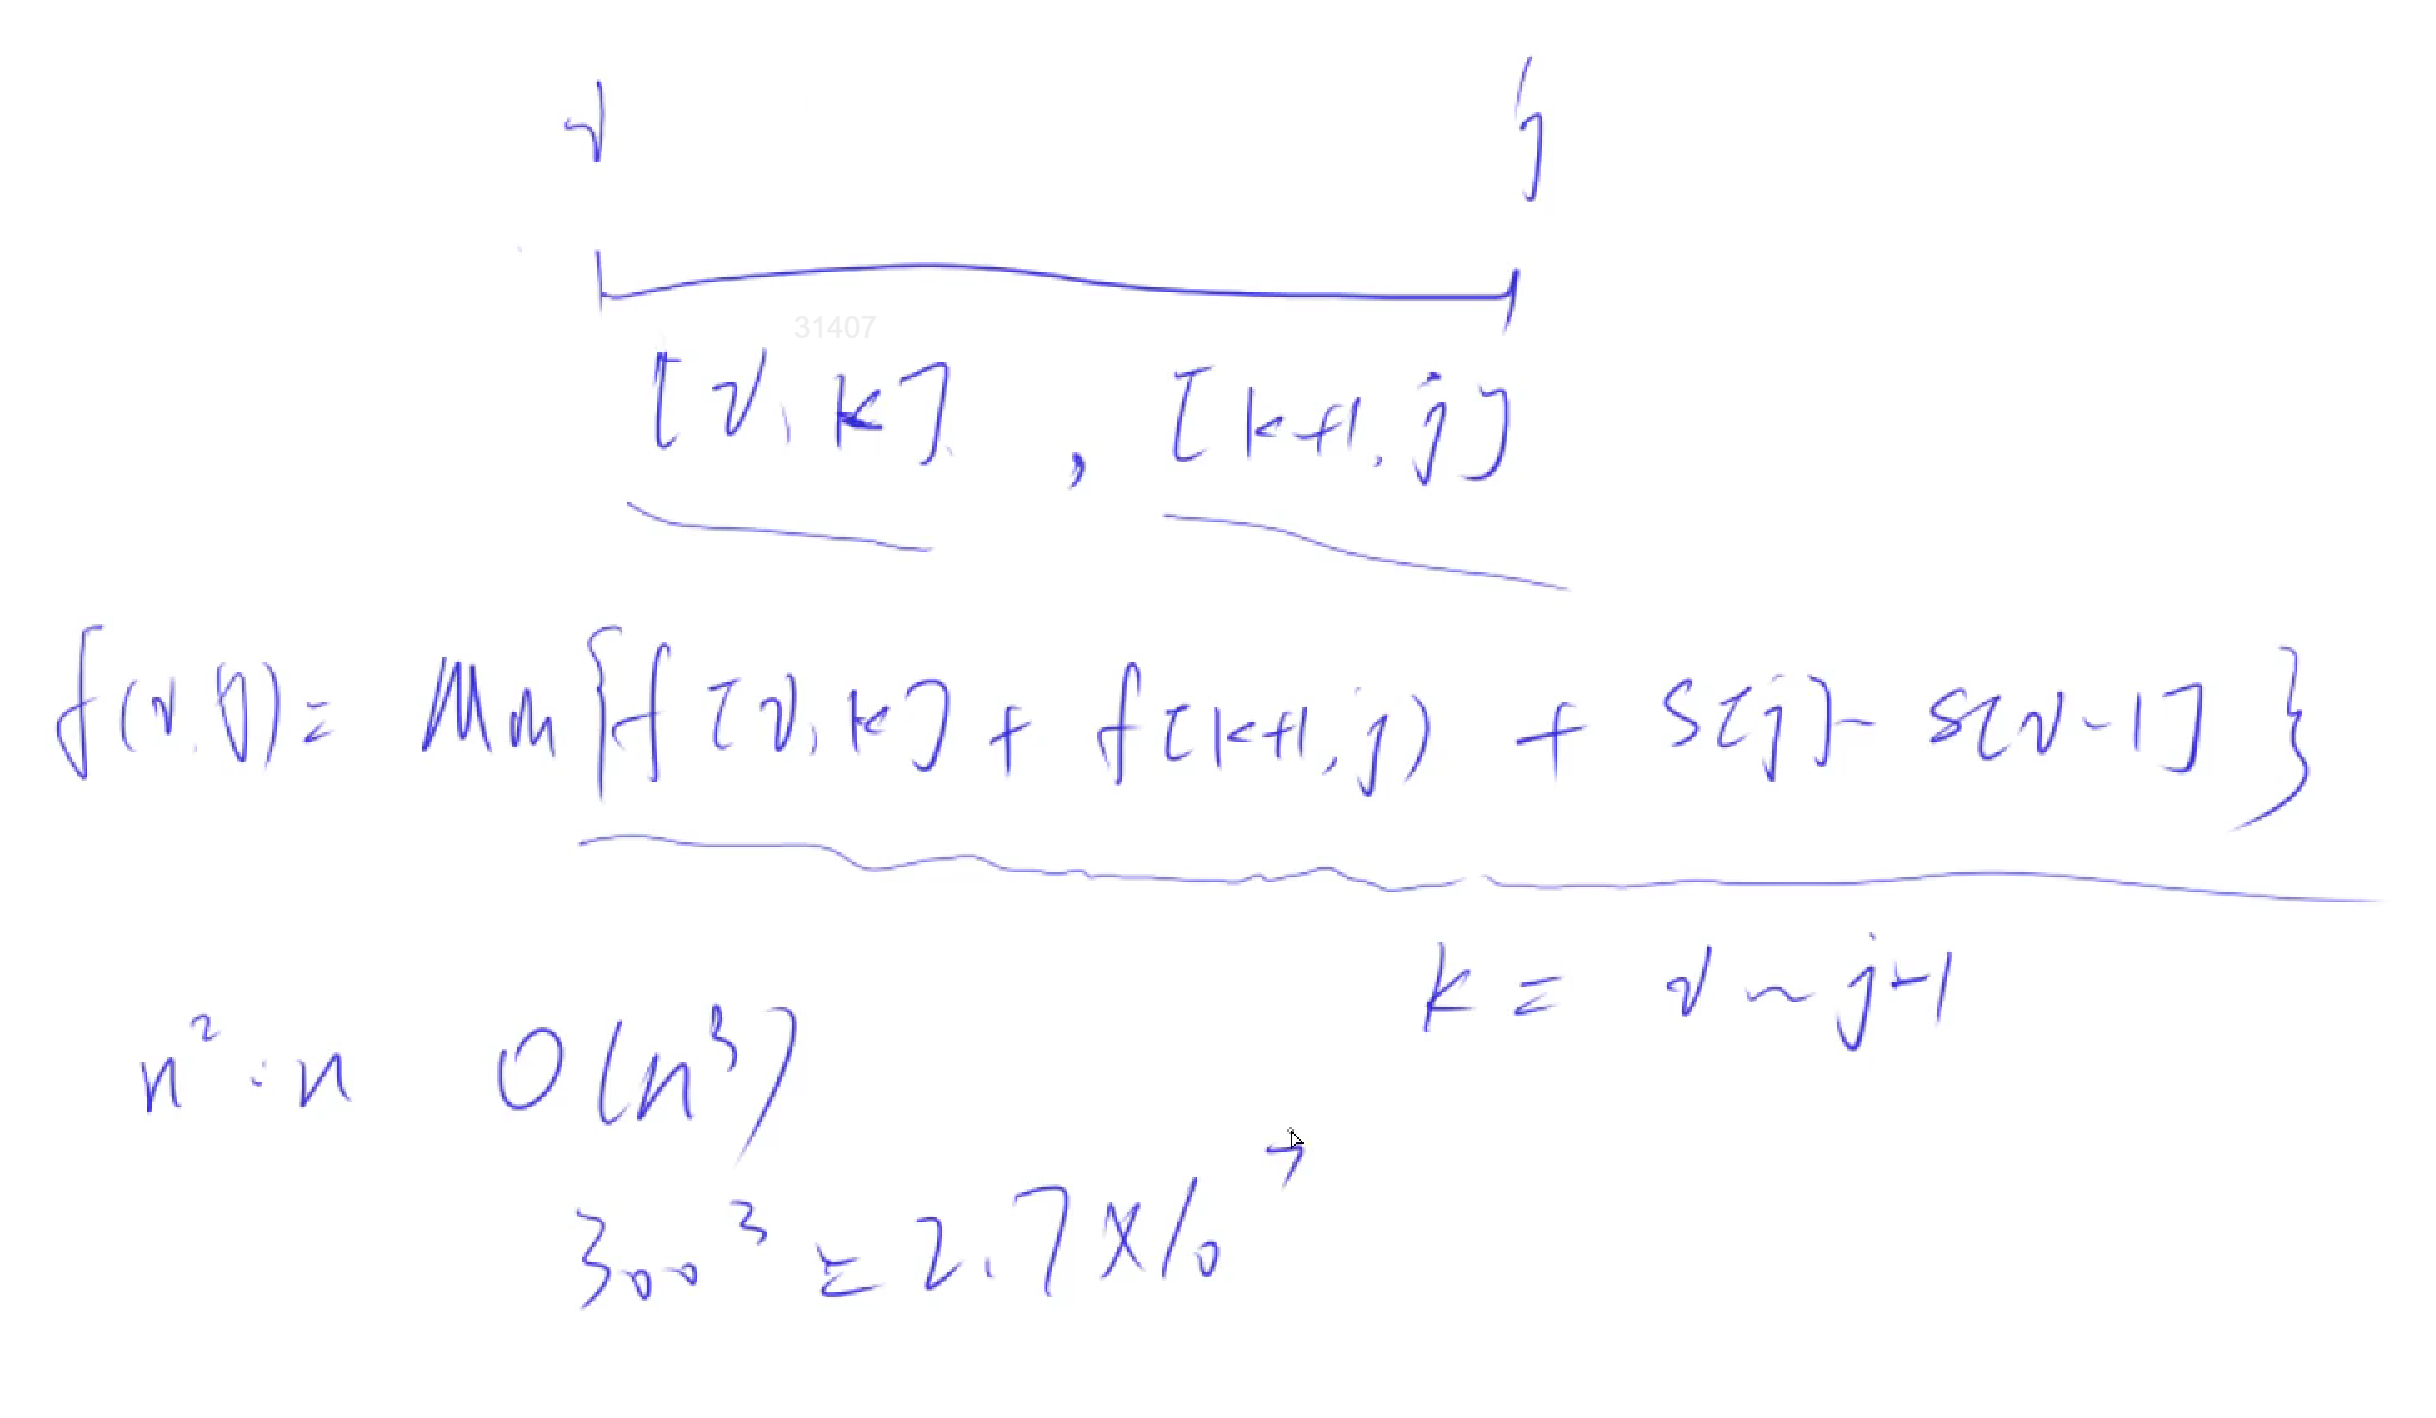 i j
31407
[i, k] , [k+1, j]
f(i, j) = Min{f[i, k] + f[k+1, j) + S[j] - S[i-1]}
k = i ~ j-1
n² · n O(n³)
300³ = 2.7 × 10⁷